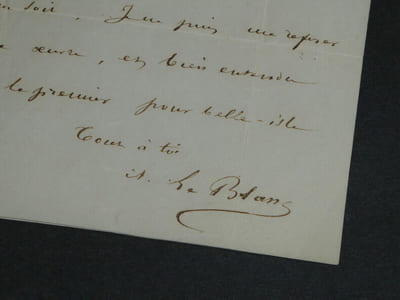 soit, Je ne puis me refuser
œuvre, et bien entendu
le premier pour belle-isle
Tout à toi
A. Le Blanc